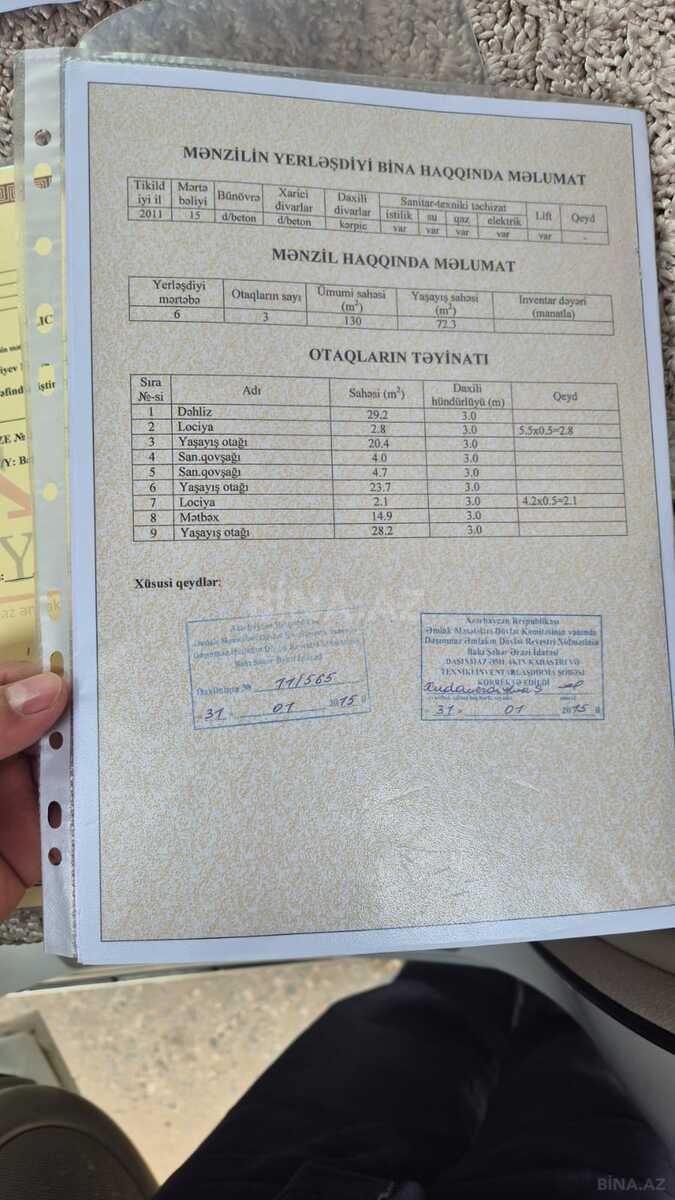 MƏNZİLİN YERLƏŞDİYİ BİNA HAQQINDA MƏLUMAT
Tikild iyi il Mərtə bəliyi Bünövrə Xarici divarlar Daxili divarlar Sanitar-texniki təchizat Lift Qeyd
istilik su qaz elektrik
2011 15 d/beton d/beton kərpic var var var var var -
MƏNZİL HAQQINDA MƏLUMAT
Yerləşdiyi mərtəbə Otaqların sayı Ümumi sahəsi (m²) Yaşayış sahəsi (m²) İnventar dəyəri (manatla)
6 3 130 72.3
OTAQLARIN TƏYİNATI
Sıra №-si Adı Sahəsi (m²) Daxili hündürlüyü (m) Qeyd
1 Dəhliz 29.2 3.0
2 Lociya 2.8 3.0 5.5x0.5=2.8
3 Yaşayış otağı 20.4 3.0
4 San.qovşağı 4.0 3.0
5 San.qovşağı 4.7 3.0
6 Yaşayış otağı 23.7 3.0
7 Lociya 2.1 3.0 4.2x0.5=2.1
8 Mətbəx 14.9 3.0
9 Yaşayış otağı 28.2 3.0
Xüsusi qeydlər:
BİNA.AZ
Azərbaycan Respublikası
Əmlak Məsələləri Dövlət Komitəsinin yanında
Daşınmaz Əmlakın Dövlət Reyestri Xidmətinin
Bakı Şəhər Ərazi İdarəsi
Daxilolma № 11/565
"31" 01 2015 il
Azərbaycan Respublikası
Əmlak Məsələləri Dövlət Komitəsinin yanında
Daşınmaz Əmlakın Dövlət Reyestri Xidmətinin
Bakı Şəhər Ərazi İdarəsi
DAŞINMAZ ƏMLAKIN KADASTRI VƏ
TEXNİKİ İNVENTARLAŞDIRMA ŞÖBƏSİ
KORREKTƏ EDİLDİ
"31" 01 2015 il
BİNA.AZ